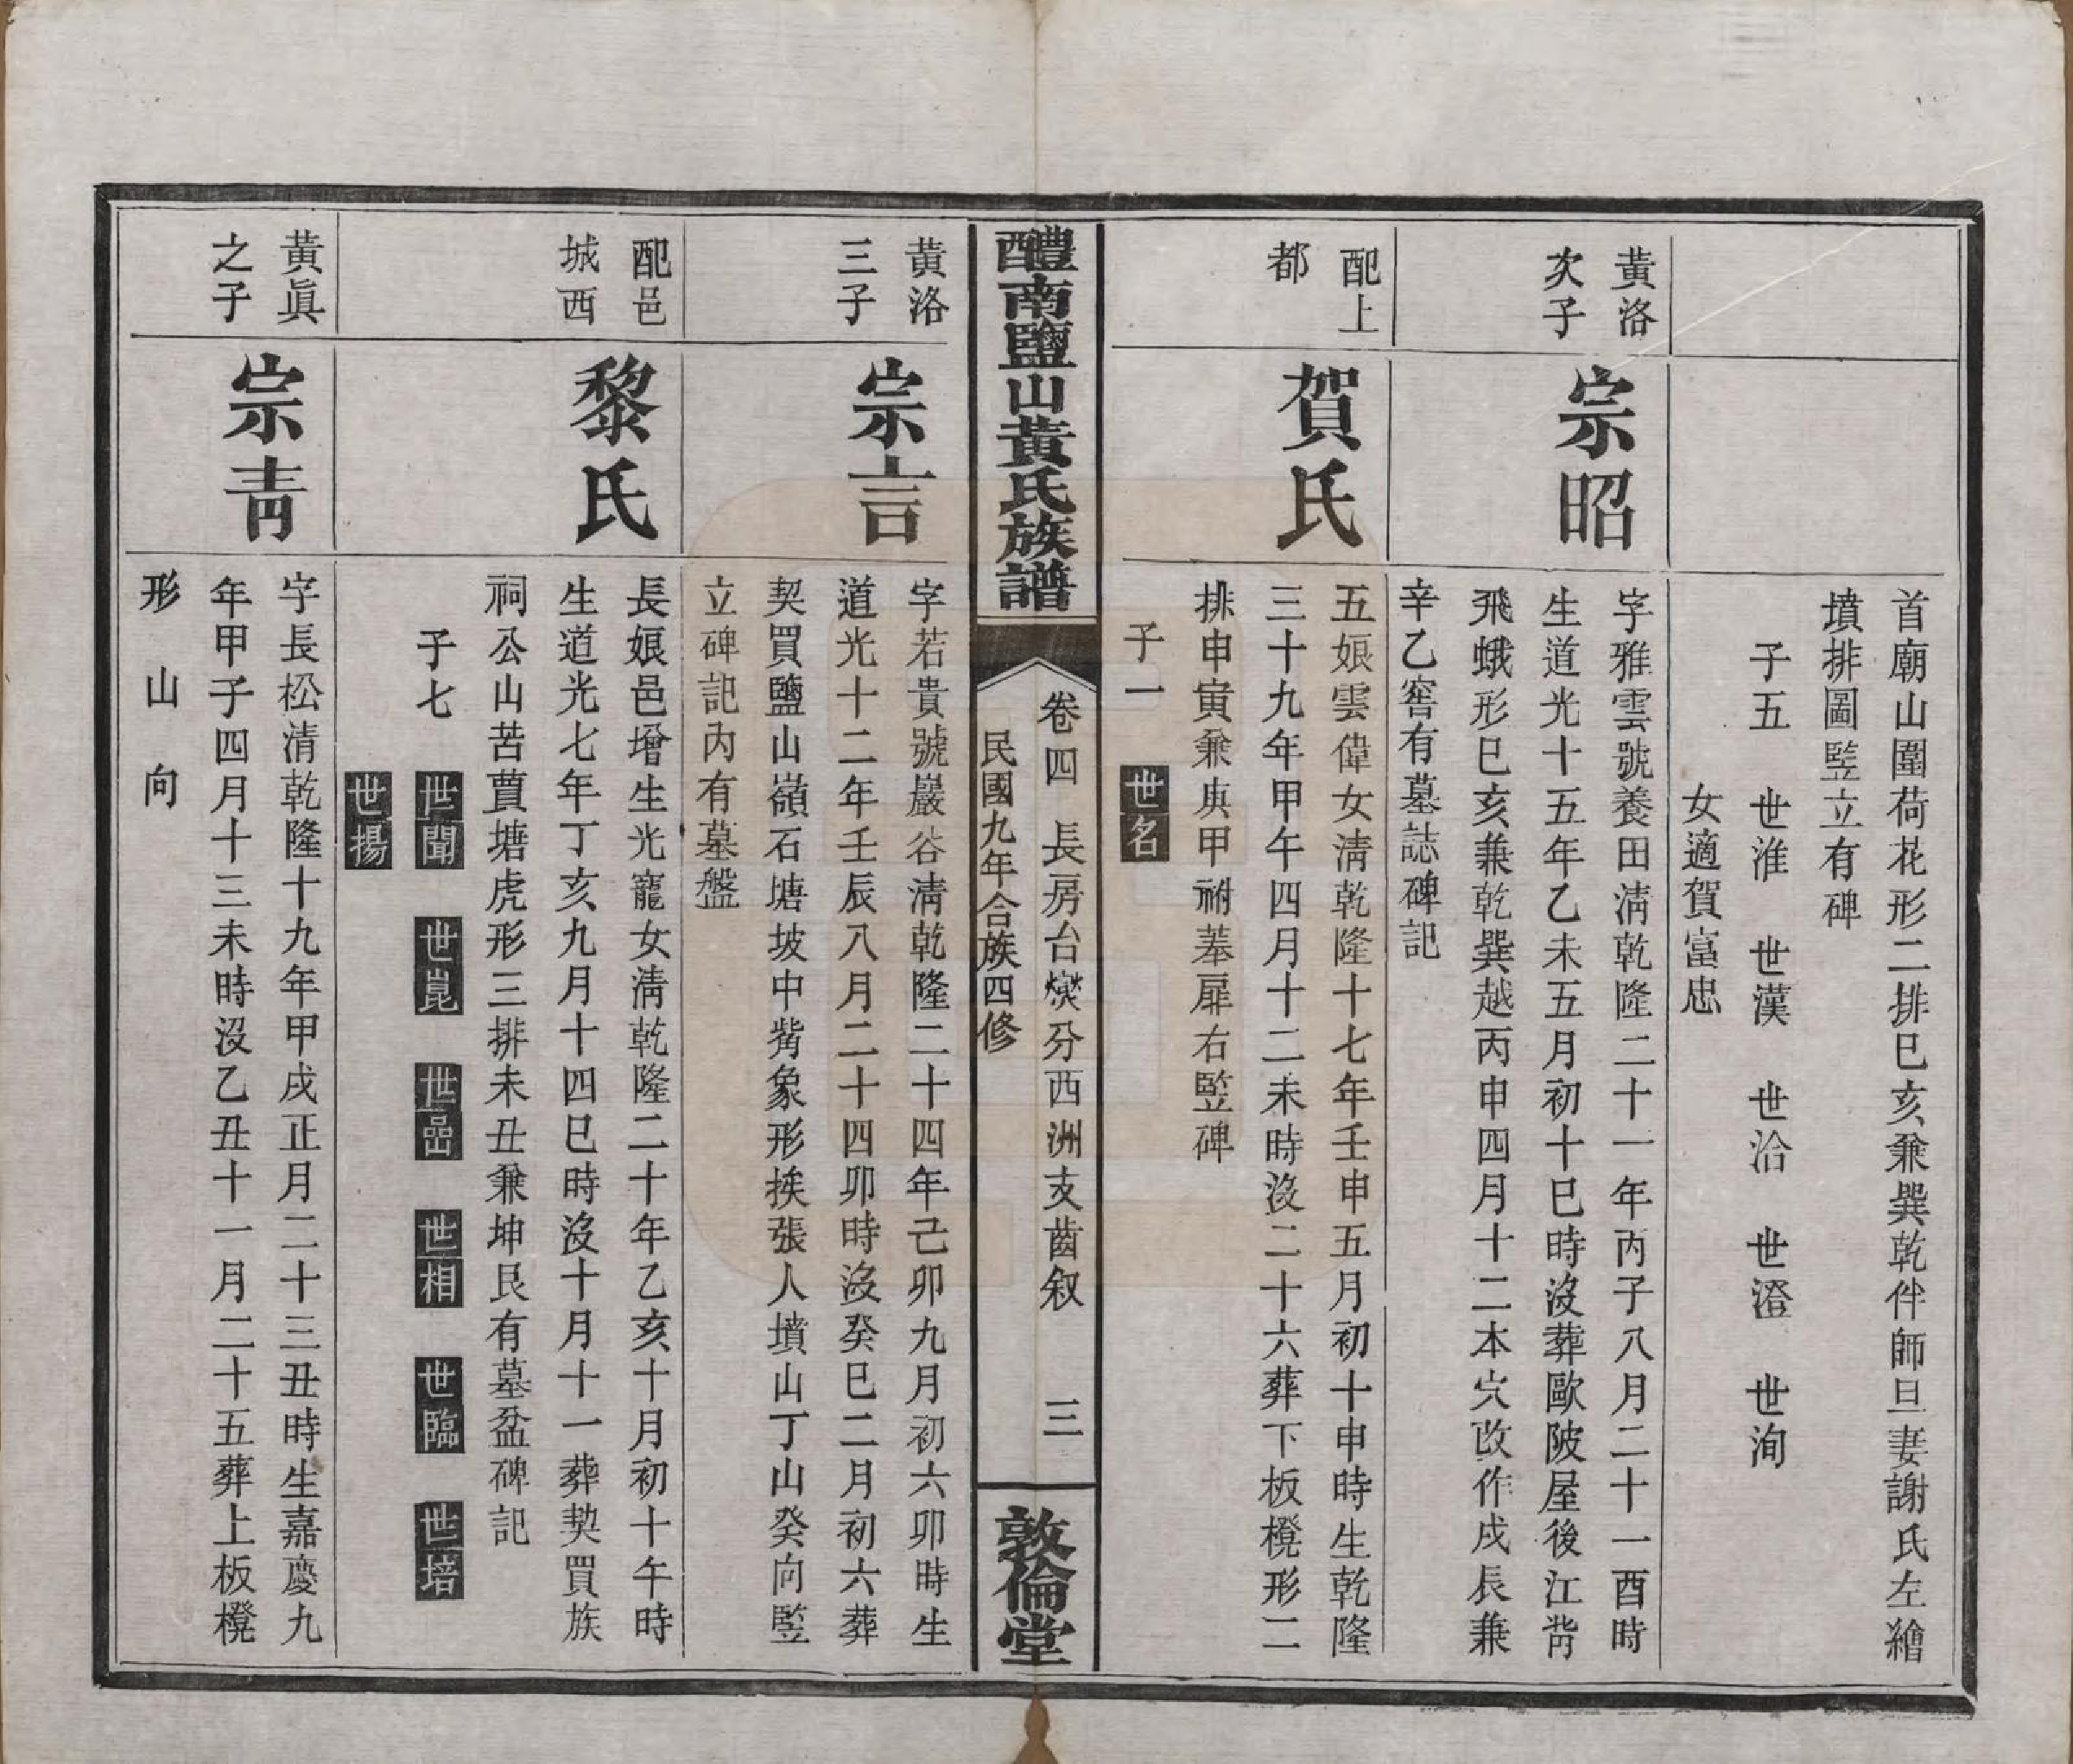 首廟山圍荷花形二排巳亥兼巽乾伴師旦妻謝氏左繪
墳排圖監立有碑
子五 世淮 世漢 世洽 世澄 世洵
女適賀富忠
黃洛
次子
宗昭
字雅雲號養田淸乾隆二十一年丙子八月二十一酉時
生道光十五年乙未五月初十巳時沒葬歐陂屋後江背
飛蛾形巳亥兼乾巽越丙申四月十二本穴改作戌辰兼
辛乙窖有墓誌碑記
配上
都
賀氏
五娘雲偉女淸乾隆十七年壬申五月初十申時生乾隆
三十九年甲午四月十二未時沒二十六葬下板櫈形二
排申寅兼庚甲祔墓扉右監碑
子一 世名
醴南鹽山黃氏族譜
卷四 長房台爕分西洲支齒叙 三
民國九年合族四修
敦倫堂
黃洛
三子
宗言
字若貴號巖谷淸乾隆二十四年己卯九月初六卯時生
道光十二年壬辰八月二十四卯時沒癸巳二月初六葬
契買鹽山嶺石塘坡中背象形挨張人墳山丁山癸向監
立碑記內有墓盤
配邑
城西
黎氏
長娘邑增生光寵女淸乾隆二十年乙亥十月初十午時
生道光七年丁亥九月十四巳時沒十月十一葬契買族
祠公山苦賈塘虎形三排未丑兼坤艮有墓盆碑記
子七 世聞 世崑 世嵒 世相 世臨 世培
世揚
黃眞
之子
宗靑
字長松清乾隆十九年甲戌正月二十三丑時生嘉慶九
年甲子四月十三未時沒乙丑十一月二十五葬上板櫈
形 山 向